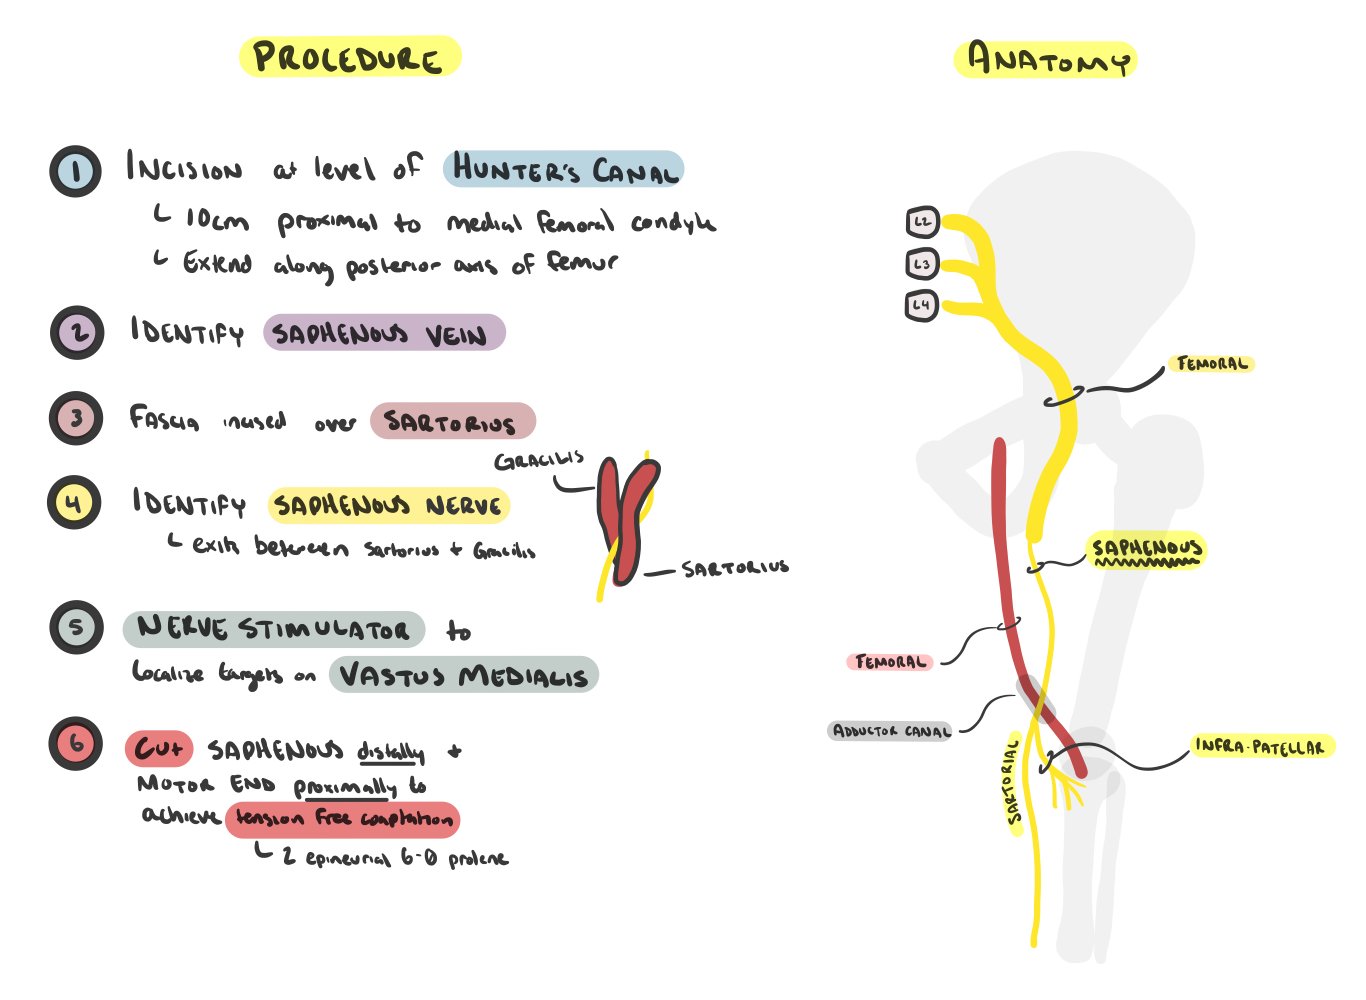 PROCEDURE
1 INCISION at level of HUNTER'S CANAL
10cm proximal to medial femoral condyle
Extend along posterior axis of femur
2 IDENTIFY SAPHENOUS VEIN
3 FASCIA incised over SARTORIUS
4 IDENTIFY SAPHENOUS NERVE
exits between Sartorius + Gracilis
GRACILIS
SARTORIUS
5 NERVE STIMULATOR to
localize targets on VASTUS MEDIALIS
6 CUT SAPHENOUS distally +
MOTOR END proximally to
achieve tension free coaptation
2 epineurial 6-0 prolene
ANATOMY
L2
L3
L4
FEMORAL
SAPHENOUS
FEMORAL
ADDUCTOR CANAL
SARTORIAL
INFRA-PATELLAR